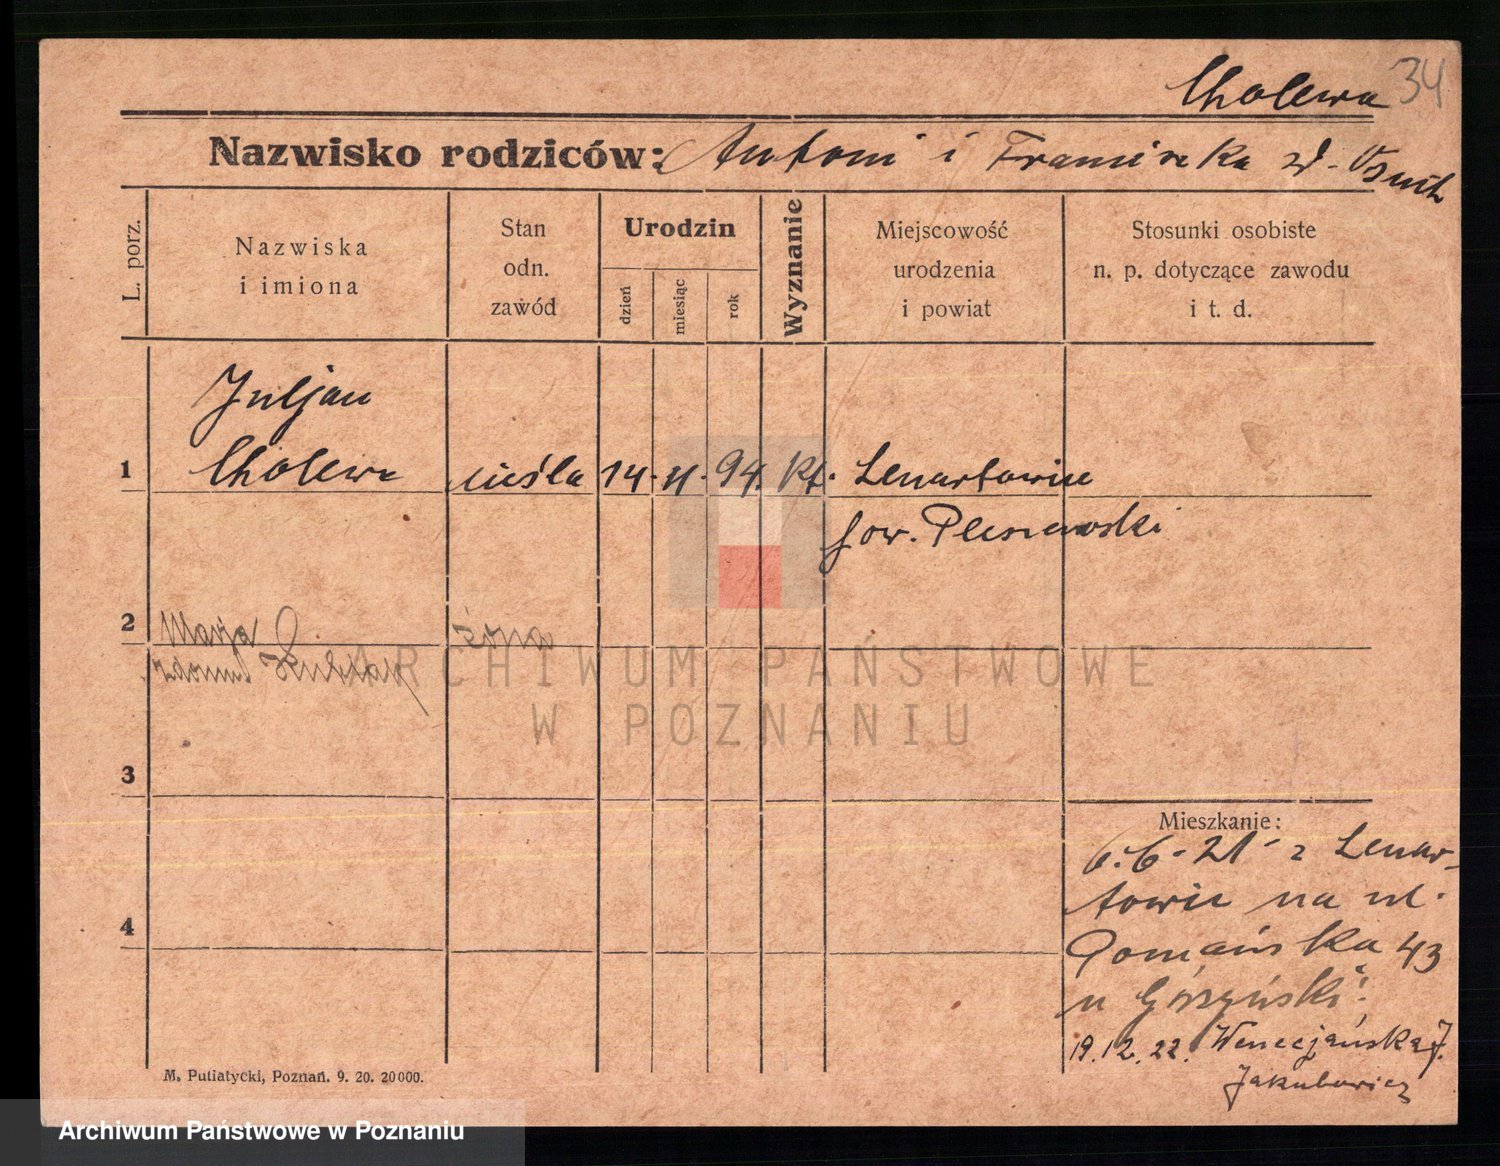 Cholewa 34
Nazwisko rodziców: Antoni i Franciszka zd.
L. porz.
Nazwiska
i imiona
Stan
odn.
zawód
Urodzin
dzień
miesiąc
rok
Wyznanie
Miejscowość
urodzenia
i powiat
Stosunki osobiste
n. p. dotyczące zawodu
i t. d.
Juljan
1 Cholewa cieśla 14. 94. kt. Lenartowice
pow. Pleszewski
2 Marja żona
ARCHIWUM PAŃSTWOWE
W POZNANIU
3
Mieszkanie:
6.6.21 z Lenar-
towic na ul.
4
43
u Górzyński.
19.12.22. Wenecjańska 7.
Jakubowicz
M. Putiatycki, Poznań. 9. 20. 20000.
Archiwum Państwowe w Poznaniu